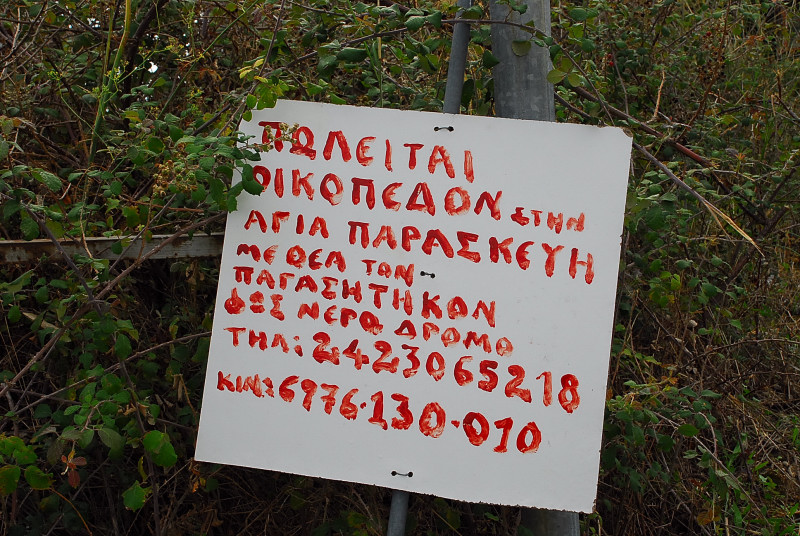 ΠΩΛΕΙΤΑΙ
ΟΙΚΟΠΕΔΟΝ ΣΤΗΝ
ΑΓΙΑ ΠΑΡΑΣΚΕΥΗ
ΜΕ ΘΕΑ ΤΩΝ
ΠΑΓΑΣΗΤΗΚΩΝ
ΦΩΣ ΝΕΡΩ ΔΡΩΜΟ
ΤΗΛ: 2423065218
ΚΙΝ: 6976.130.010